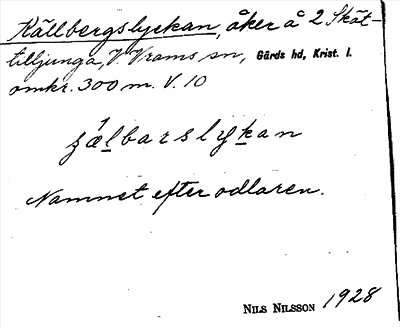 Källbergslyckan, åker å 2 Skät-
tilljunga, V. Vrams sn, Gärds hd, Krist. l.
omkr. 300 m. V. 10
Namnet efter odlaren.
NILS NILSSON 1928